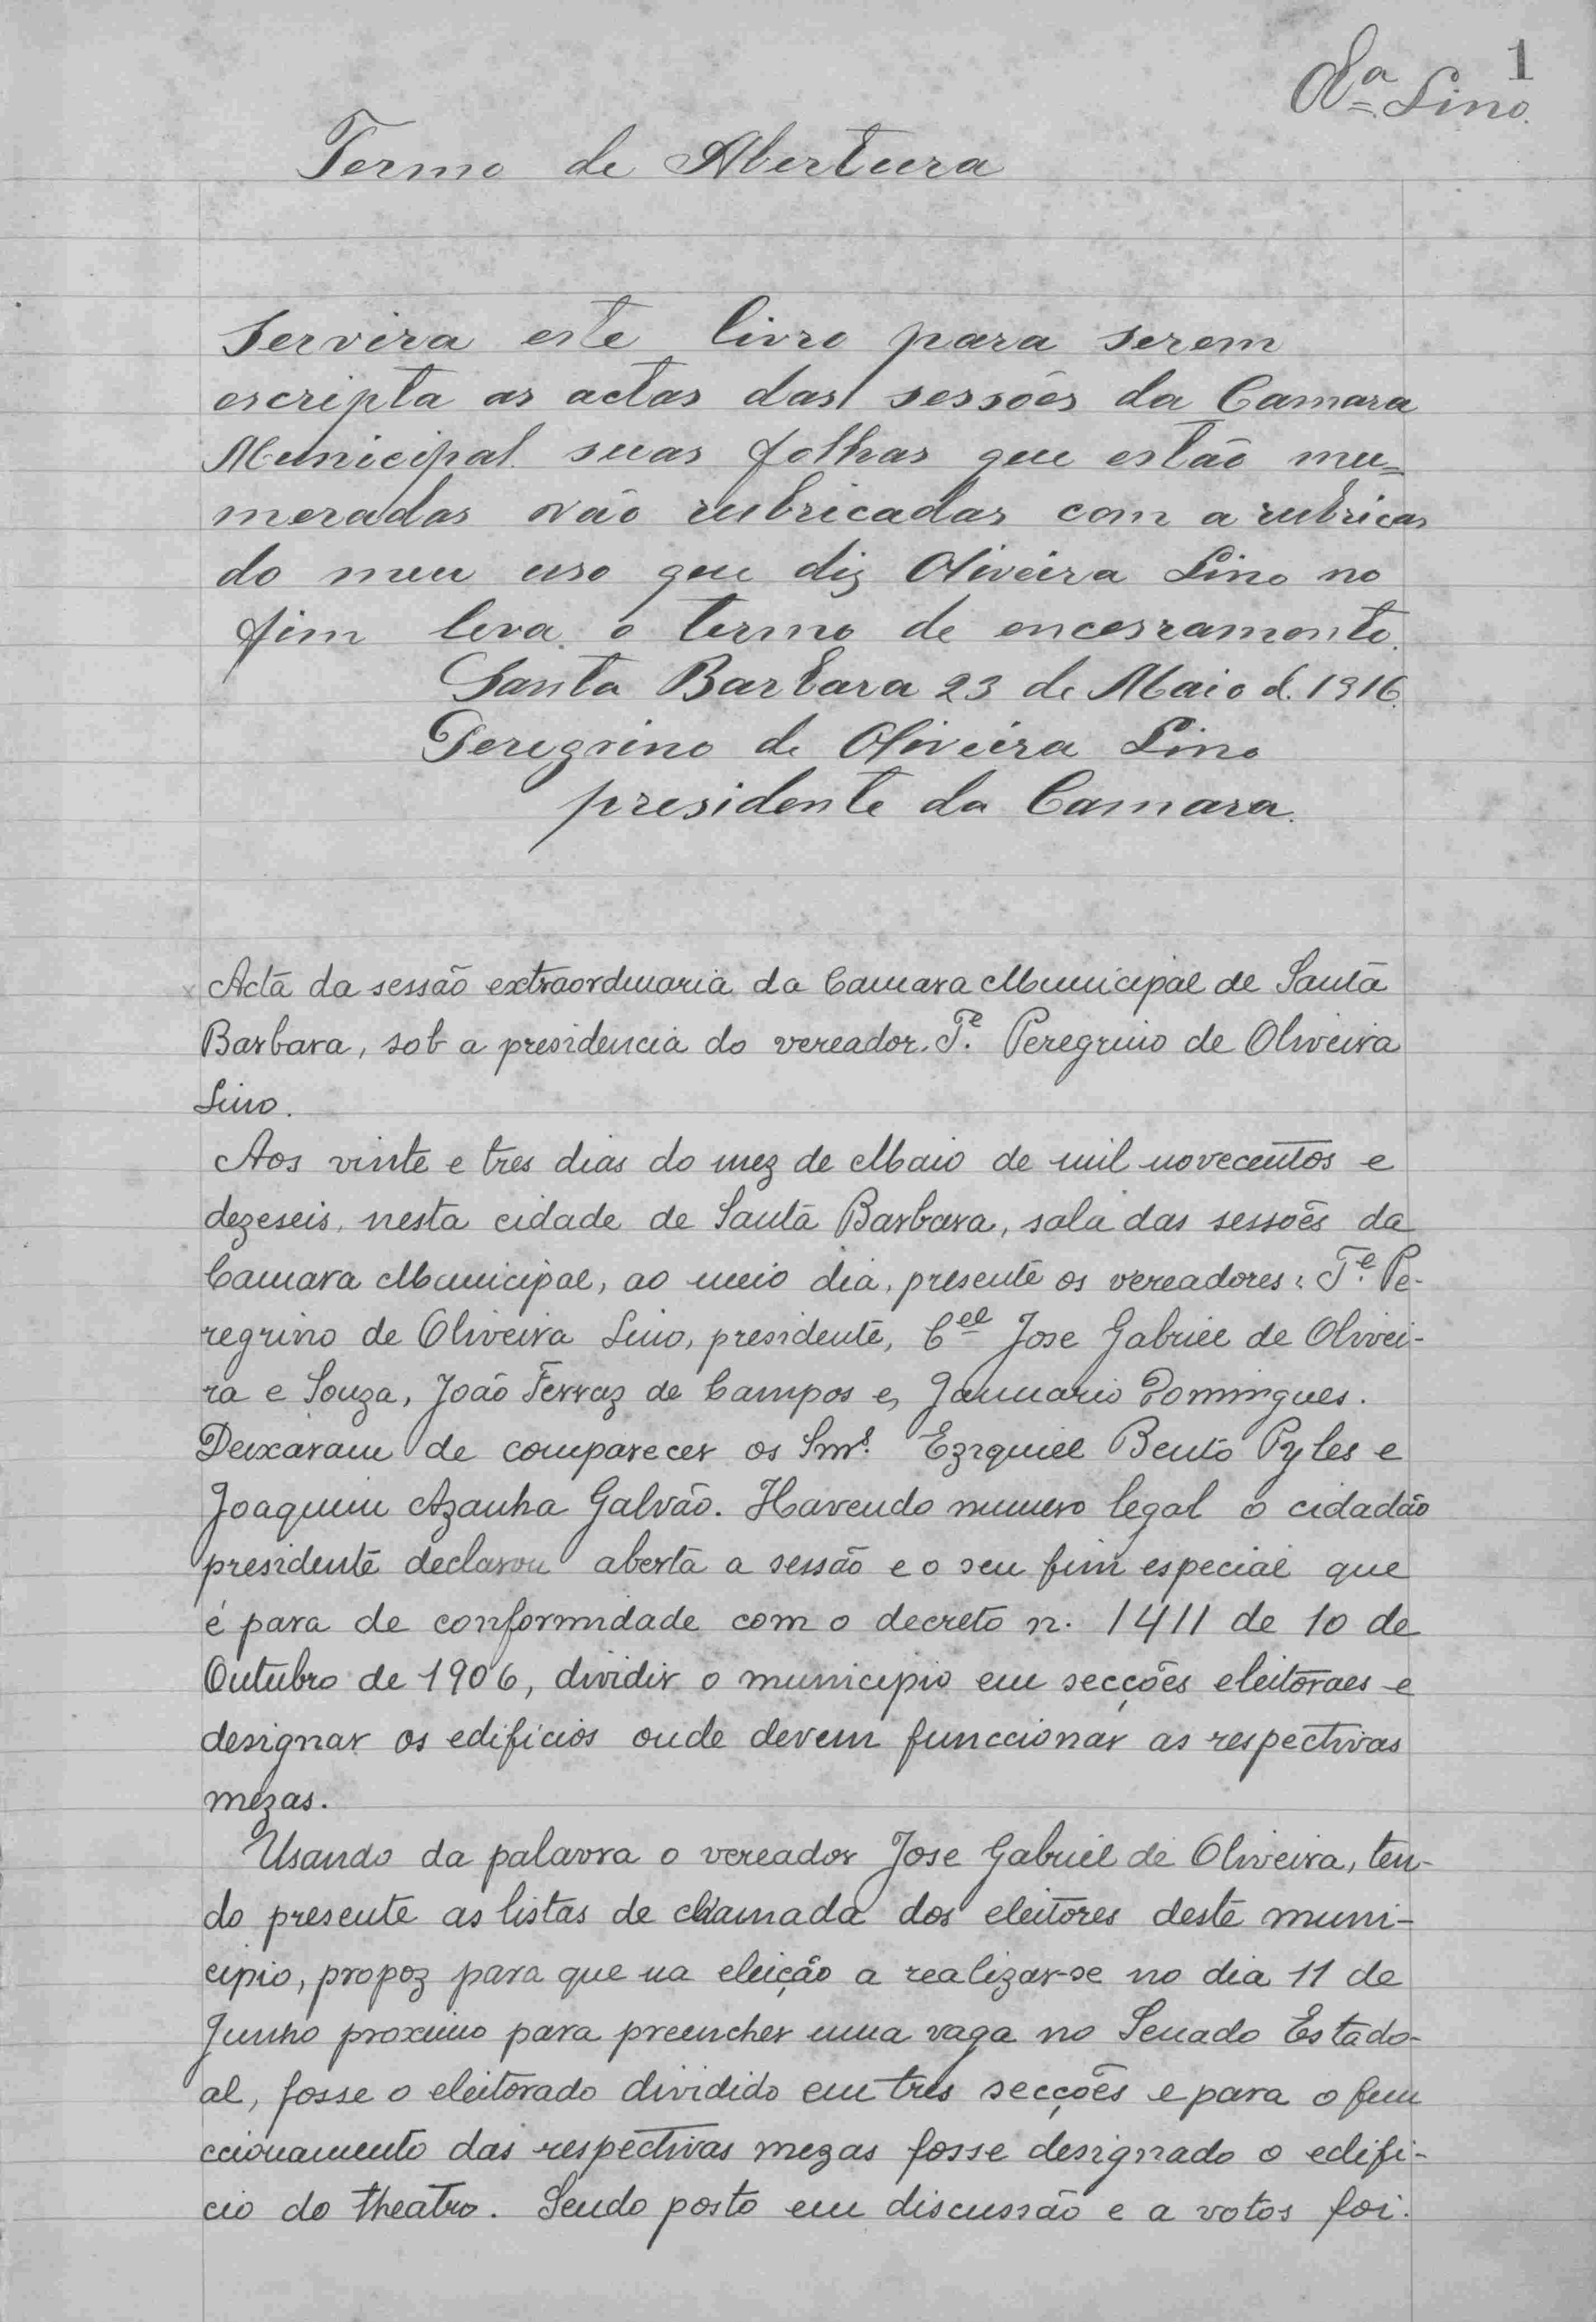 1
Oª Lino.
Termo de Abertura
Servira este livro para serem
escripta as actas das sessões da Camara
Municipal suas folhas que estão nu=
meradas vão rubricadas com a rubricas
do meu uso que diz Oliveira Lino no
fim leva o termo de encerramento.
Santa Barbara 23 de Maio d. 1916.
Peregrino de Oliveira Lino
presidente da Camara.
Acta da sessão extraordinaria da Camara Municipal de Santa
Barbara, sob a presidencia do vereador Tᵉ. Peregrino de Oliveira
Lino.
Aos vinte e tres dias do mez de Maio de mil novecentos e
dezeseis, nesta cidade de Santa Barbara, sala das sessões da
Camara Municipal, ao meio dia, presente os vereadores: Tᵉ. Pe-
regrino de Oliveira Lino, presidente, Cᵉˡ Jose Gabriel de Olivei-
ra e Souza, João Ferraz de Campos e, Januario Domingues.
Deixaram de comparecer os Snrˢ. Ezequiel Bento Pyles e
Joaquim Azanha Galvão. Havendo numero legal o cidadão
presidente declarou aberta a sessão e o seu fim especial que
é para de conformidade com o decreto n. 1411 de 10 de
Outubro de 1906, dividir o municipio em secções eleitoraes e
designar os edificios onde devem funccionar as respectivas
mezas.
Usando da palavra o vereador Jose Gabriel de Oliveira, ten-
do presente as listas de chamada dos eleitores deste muni-
cipio, propoz para que na eleição a realizar-se no dia 11 de
Junho proximo para preencher uma vaga no Senado Estado-
al, fosse o eleitorado dividido em tres secções e para o fun
ccionamento das respectivas mezas fosse designado o edifi-
cio do theatro. Sendo posto em discussão e a votos foi.